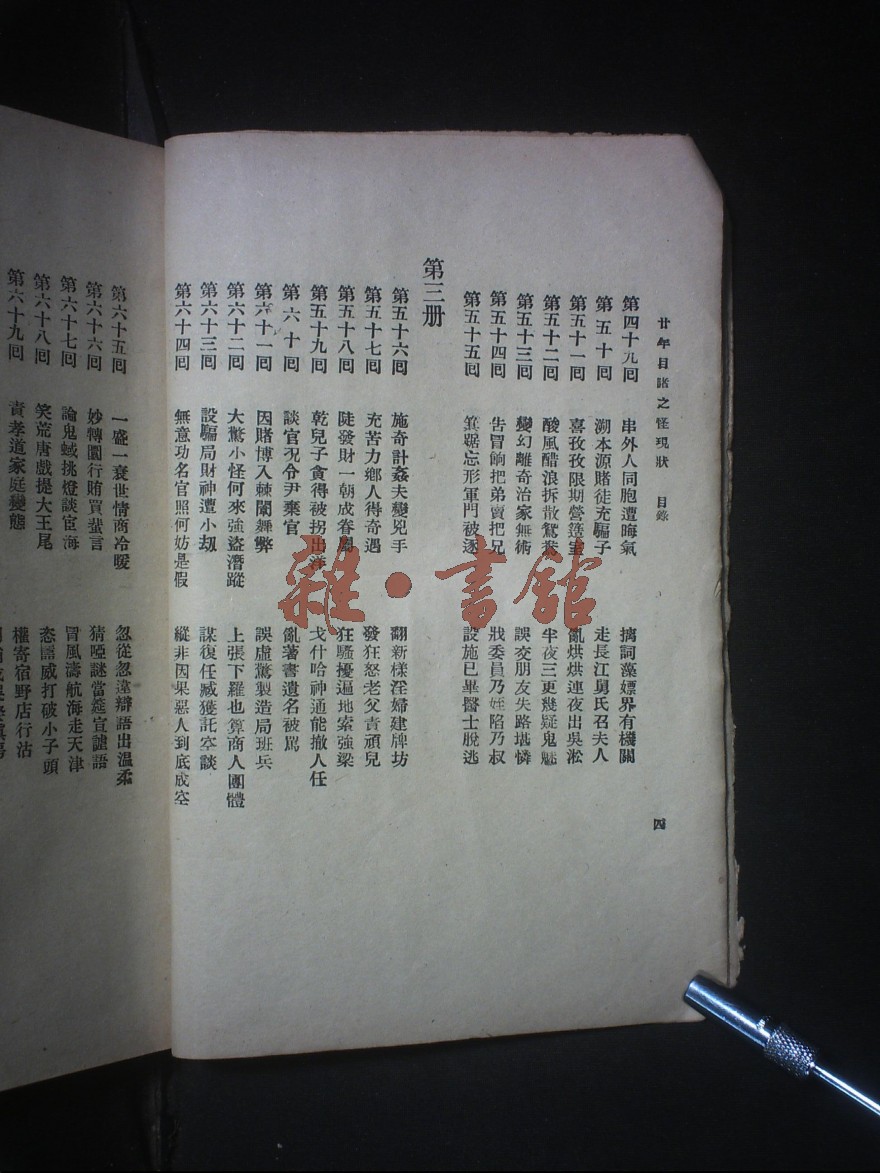 廿年目睹之怪現狀 目錄 四
第四十九回 串外人同胞遭晦氣 摛詞藻嫖界有機關
第五十回 溯本源賭徒充騙子 走長江舅氏召夫人
第五十一回 喜孜孜限期營簉室 亂烘烘連夜出吳淞
第五十二回 酸風醋浪拆散鴛鴦 半夜三更幾疑鬼魅
第五十三回 變幻離奇治家無術 誤交朋友失路堪憐
第五十四回 告冒餉把弟賣把兄 戕委員乃姪陷乃叔
第五十五回 箕踞忘形軍門被逐 設施已畢醫士脫逃
第三册
第五十六回 施奇計姦夫變兇手 翻新樣淫婦建牌坊
第五十七回 充苦力鄉人得奇遇 發狂怒老父責頑兒
第五十八回 陡發財一朝成眷屬 狂騷擾遍地索強梁
第五十九回 乾兒子貪得被拐出洋 戈什哈神通能撤人任
第六十回 談官況令尹棄官 亂著書遺名被罵
第六十一回 因賭博入棘闈舞弊 誤虛驚製造局班兵
第六十二回 大驚小怪何來強盜潛蹤 上張下羅也算商人團體
第六十三回 設騙局財神遭小劫 謀復任臧獲託空談
第六十四回 無意功名官照何妨是假 縱非因果惡人到底成空
第六十五回 一盛一衰世情商冷暖 忽從忽違辯語出溫柔
第六十六回 妙轉圜行賄買蜚言 猜啞謎當筵宣謔語
第六十七回 論鬼蜮挑燈談宦海 冒風濤航海走天津
第六十八回 笑荒唐戲提大王尾 恣嚚威打破小子頭
第六十九回 責孝道家庭變態 權寄宿野店行沽
雜·書館